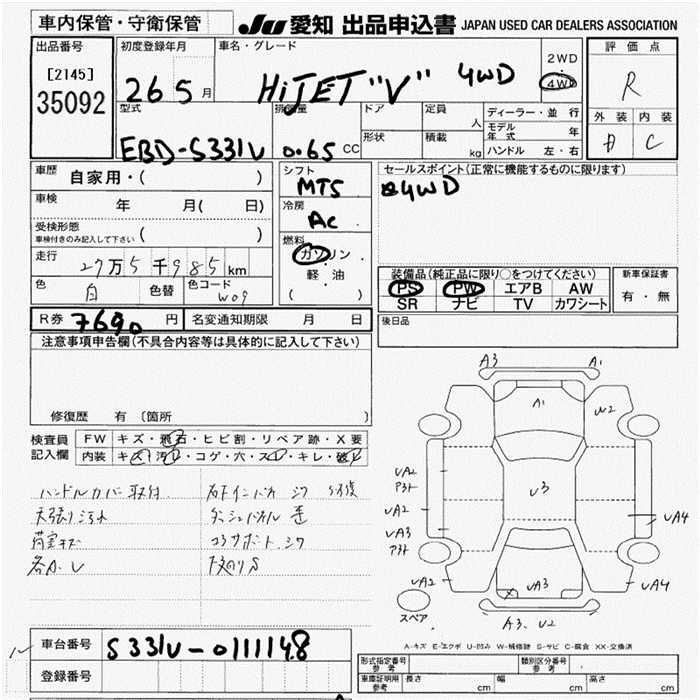 車内保管・守衛保管
JU 愛知 出品申込書 JAPAN USED CAR DEALERS ASSOCIATION
出品番号
[2145]
35092
初度登録年月
26 5 月
車名・グレード
HiJET "V" 4WD
2WD
・
4WD
評価点
R
外装 内装
C
型式
EBD-S331V
排気量
0.65 CC
ドア
形状
定員
人
積載
kg
ディーラー・並行
モデル年式 年
ハンドル 左・右
車歴 自家用・( )
車検 年 月( 日)
受検形態
車検付きのみ記入して下さい ( )
走行 27万5千985 km
色 白 色替 色コード W09
シフト
MT5
冷房
AC
燃料
ガソリン
・
軽油
( )
セールスポイント(正常に機能するものに限ります)
4WD
装備品(純正品に限り○をつけてください)
PS PW エアB AW
SR ナビ TV カワシート
新車保証書
有・無
R券 7690 円 名変通知期限 月 日
後日品
注意事項申告欄(不具合内容等は具体的に記入して下さい)
修復歴 有 〔箇所 〕
検査員記入欄
FW キズ・飛石・ヒビ割・リペア跡・X要
内装 キズ・汚レ・コゲ・穴・スレ・キレ・破レ
ハンドルカバー取付
天張り汚れ
荷室キズ
コアサポートシワ
下廻りS
A3 A1
A1
W2
UA2
アタト
UA2
U3
UA3
アタト
UA4
UA2
UA3
UA4
A3、U2
スペア
A-キズ E-エクボ U-凹み W-補修跡 S-サビ C-腐食 XX-交換済
車台番号 S331V-0111148
登録番号
形式指定番号
参考
類別区分番号
参考
車庫証明用
参考
長さ cm 幅 cm 高さ cm